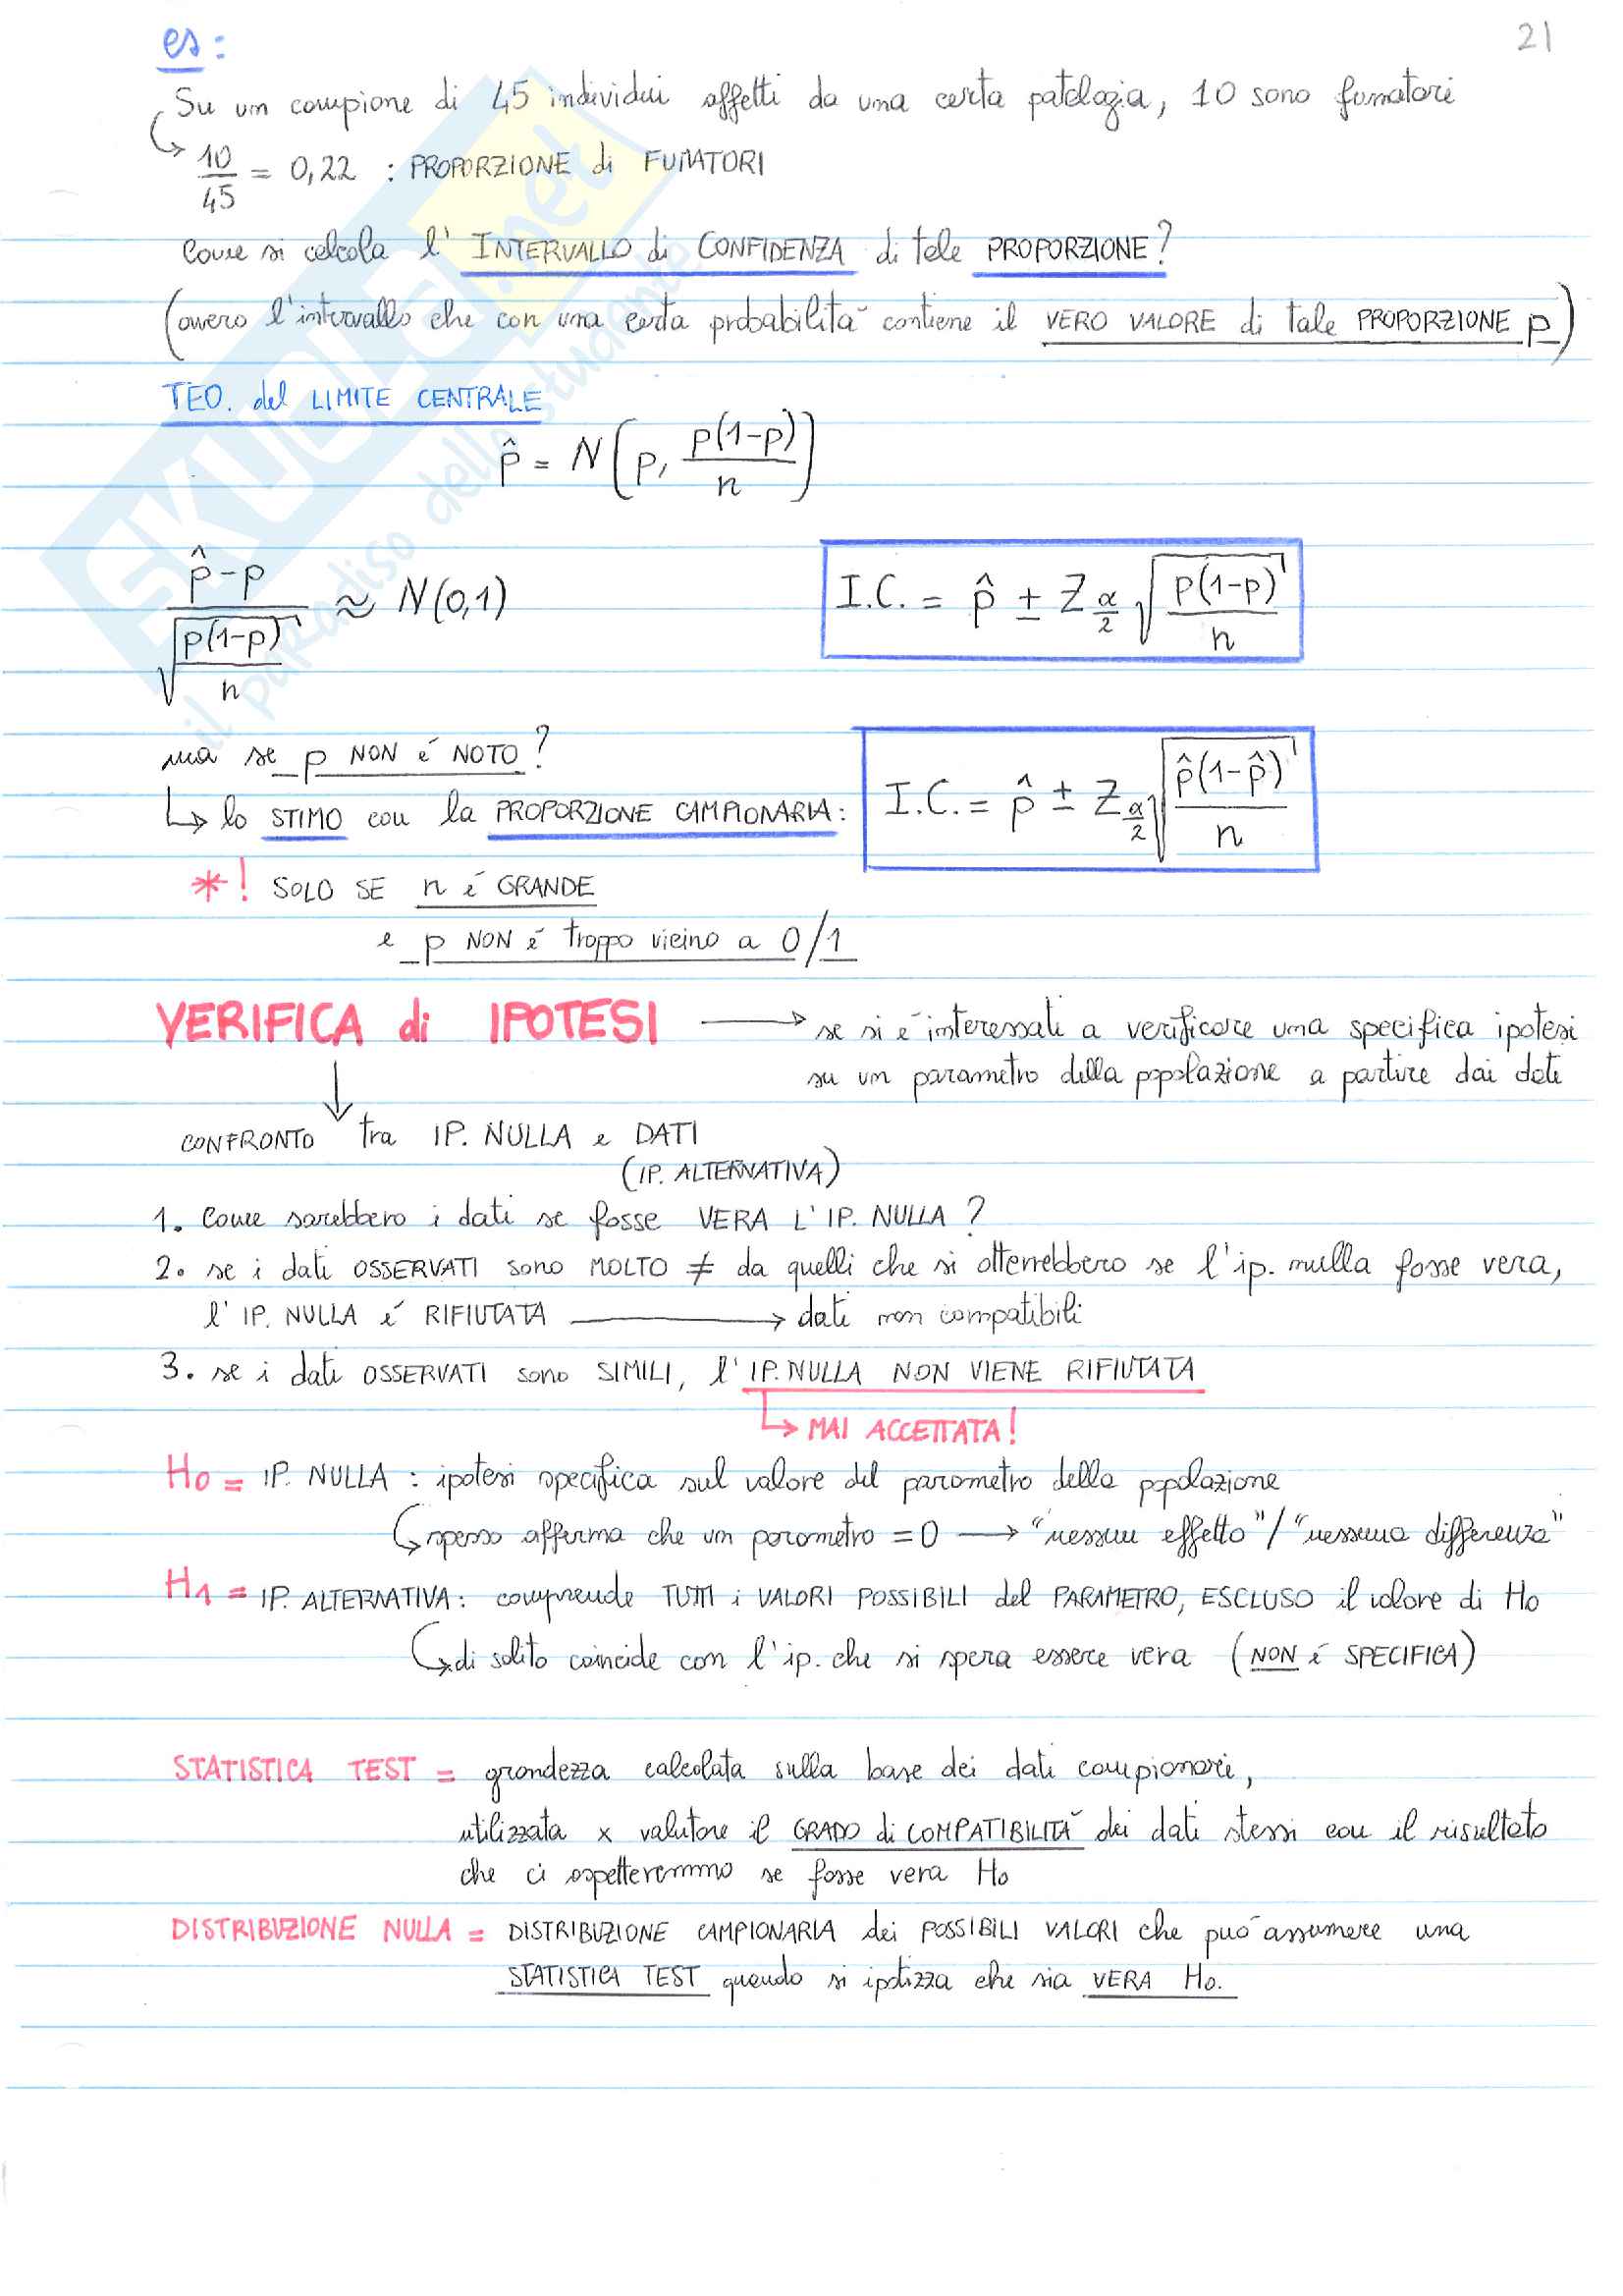 21
es:
Su un campione di 45 individui affetti da una certa patologia, 10 sono fumatori
10/45 = 0,22 : PROPORZIONE di FUMATORI
Come si calcola l' INTERVALLO di CONFIDENZA di tale PROPORZIONE?
(ovvero l'intervallo che con una certa probabilità contiene il VERO VALORE di tale PROPORZIONE p)
TEO. del LIMITE CENTRALE
p̂ = N(p, p(1-p)/n)
(p̂-p)/√(p(1-p)/n) ≈ N(0,1)
I.C. = p̂ ± Z α/2 √(p(1-p)/n)
ma se p NON é NOTO?
↳ lo STIMO con la PROPORZIONE CAMPIONARIA:
I.C. = p̂ ± Z α/2 √(p̂(1-p̂)/n)
*! SOLO SE n é GRANDE
e p NON é troppo vicino a 0/1
VERIFICA di IPOTESI → se si é interessati a verificare una specifica ipotesi
su un parametro della popolazione a partire dai dati
↓
CONFRONTO tra IP. NULLA e DATI
(IP. ALTERNATIVA)
1. Come sarebbero i dati se fosse VERA L' IP. NULLA ?
2. se i dati OSSERVATI sono MOLTO ≠ da quelli che si otterrebbero se l'ip. nulla fosse vera,
l' IP. NULLA é RIFIUTATA → dati non compatibili
3. se i dati OSSERVATI sono SIMILI, l' IP. NULLA NON VIENE RIFIUTATA
↳ MAI ACCETTATA!
H0 = IP. NULLA : ipotesi specifica sul valore del parametro della popolazione
↳ spesso afferma che un parametro = 0 → "nessun effetto" / "nessuna differenza"
H1 = IP. ALTERNATIVA: comprende TUTTI i VALORI POSSIBILI del PARAMETRO, ESCLUSO il valore di H0
↳ di solito coincide con l'ip. che si spera essere vera (NON é SPECIFICA)
STATISTICA TEST = grandezza calcolata sulla base dei dati campionari,
utilizzata x valutare il GRADO di COMPATIBILITÀ dei dati stessi con il risultato
che ci aspetteremmo se fosse vera H0
DISTRIBUZIONE NULLA = DISTRIBUZIONE CAMPIONARIA dei POSSIBILI VALORI che può assumere una
STATISTICA TEST quando si ipotizza che sia VERA H0.
SKUOLA.net
il paradiso dello studente